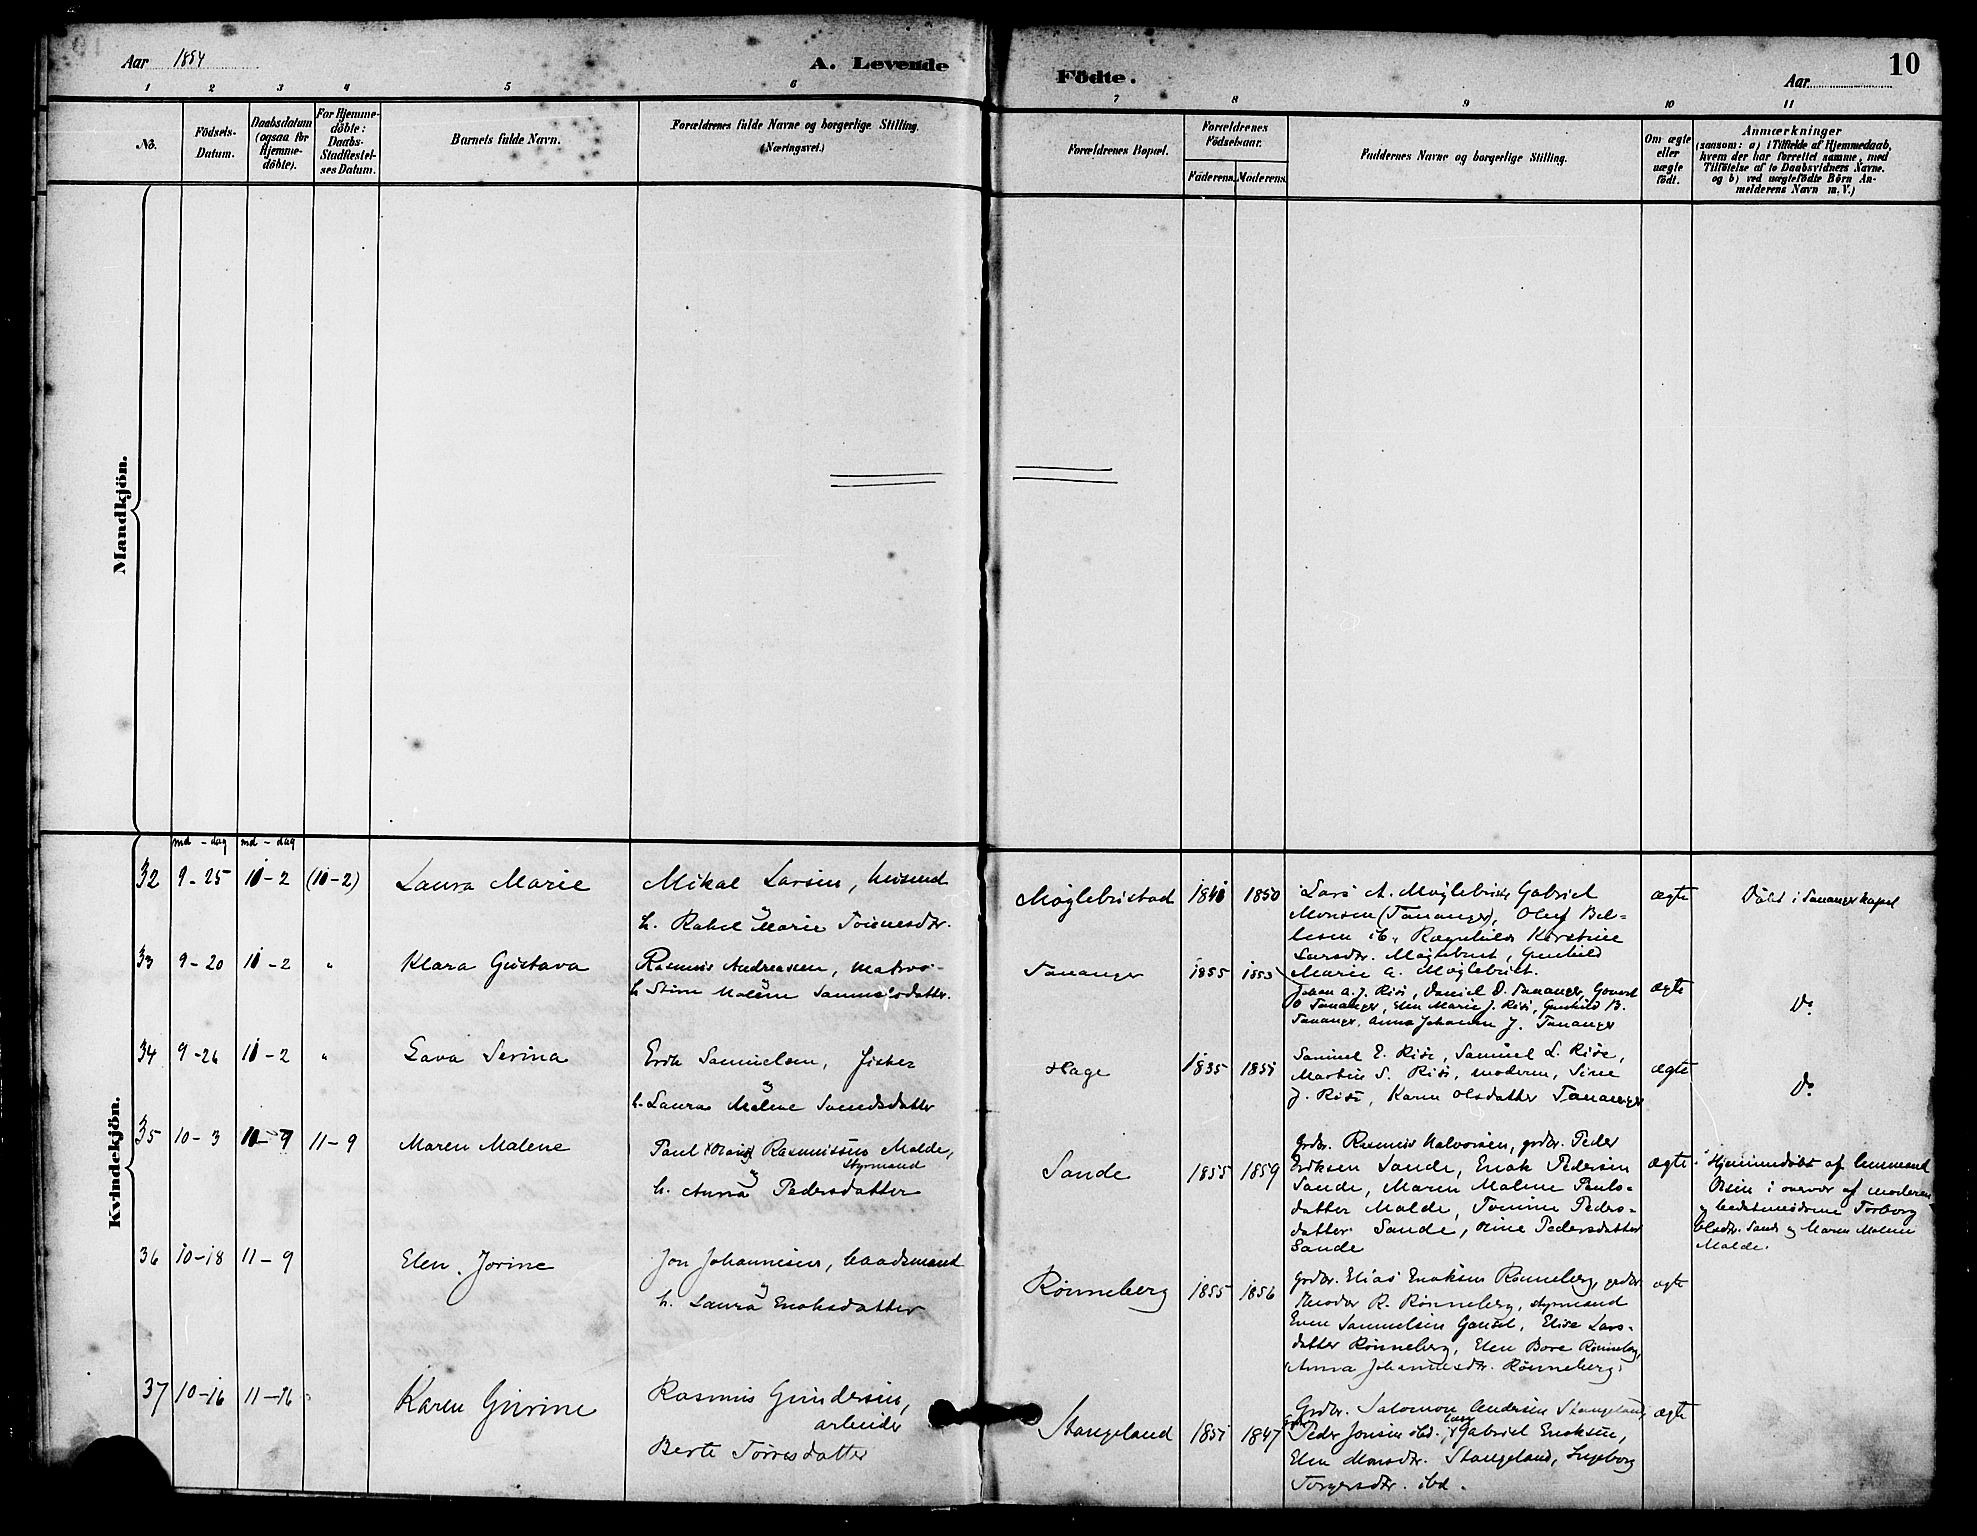 Aar 1884
A. Levende
Födte.
Aar
10
1 2 3 4 5 6 7 8 9 10 11
No.
Födsels-
Datum.
Daabsdatum
(ogsaa for
Hjemme-
döbte).
For Hjemme-
döbte:
Daabs-
Stadfæstel-
ses Datum.
Barnets fulde Navn.
Forældrenes fulde Navne og borgerlige Stilling.
(Næringsvei.)
Forældrenes Bopæl.
Forældrenes
Födselsaar.
Faderens. Moderens.
Faddernes Navne og borgerlige Stilling.
Om ægte
eller
uægte
födt.
Anmærkninger
(saasom: a) i Tilfælde af Hjemmedaab,
hvem der har forrettet samme, med
Tilföielse af to Daabsvidners Navne.
og b) ved uægtefödte Börn An-
melderens Navn m. V.)
Mandkjön.
Kvindekjön.
md - dag md - dag
32 9-25 11-2 (11-2) Laura Marie
Mikal Larsen, husmd
h. Rakel Marie Tønnesdtr.
Møglebustad 1848 1850
Lars A. Møglebust, Gabriel
Monsen (Tananger), Oluf Bel-
lesen ib., Ragnhild Kirstine
Larsdtr. Møglebust, Gunhild
Marie A. Møglebust.
ægte
Døbt i Tananger kapel
33 9-20 11-2 " Klara Gustava
Rasmus Andreassen, matros
h. Stine Malene Samuelsdatter.
Tananger 1855 1855
Johan A. J. Risø, Daniel D. Tananger, Govert
O Tananger, Elen Marie J. Risø, Gunhild B.
Tananger, Anna Johanna J. Tananger
ægte
Do
34 9-26 11-2 " Lava Serina
Erik Samuelsen, fisker
h. Laura Malene Svendsdatter
Hage 1835 1851
Samuel E. Risø, Samuel L. Risø,
Martin S. Risø, moderen, Sine
J. Risø, Karen Olsdatter Tananger
ægte
Do
35 10-3 11-9 11-9 Maren Malene
Paul Rasmussen Malde,
styrmand
h. Anna Pedersdatter
Sande 1855 1859
grdbr. Rasmus Halvorsen, grdbr. Peder
Eriksen Sande, Enok Pedersen
Sande, Maren Malene Pauls-
datter Malde, Tomine Peders-
datter Sande, Oline Pedersdatter
Sande
ægte
Hjemmedøbt af lensmand
Olsen i overvær af moderen
og bedstemødrene Torborg
Olsdtr. Sande og Maren Malene
Malde.
36 10-18 11-9
Elen Jorine
Jon Johannesen, baadsmand
h. Laura Enoksdatter
Rønneberg 1855 1856
Grdbr. Elias Enoksen Rønneberg, grdbr
Theodor R. Rønneberg, styrmand
Even Samuelsen Gousel, Elise Lars-
datter Rønneberg, Elen Bore Rønneberg,
Anna Johannesdtr. Rønneberg.
ægte
37 10-16 11-16
Karen Gurine
Rasmus Gundersen,
arbeider
Berte Torresdatter
Stangeland 1851 1847
Grdbr. Salomon Andersen Stangeland
Peder Jonsen ibd., Gabriel Enoksen,
Elen Monsdtr. Stangeland, Ingeborg
Torgersdtr. ibd.
ægte